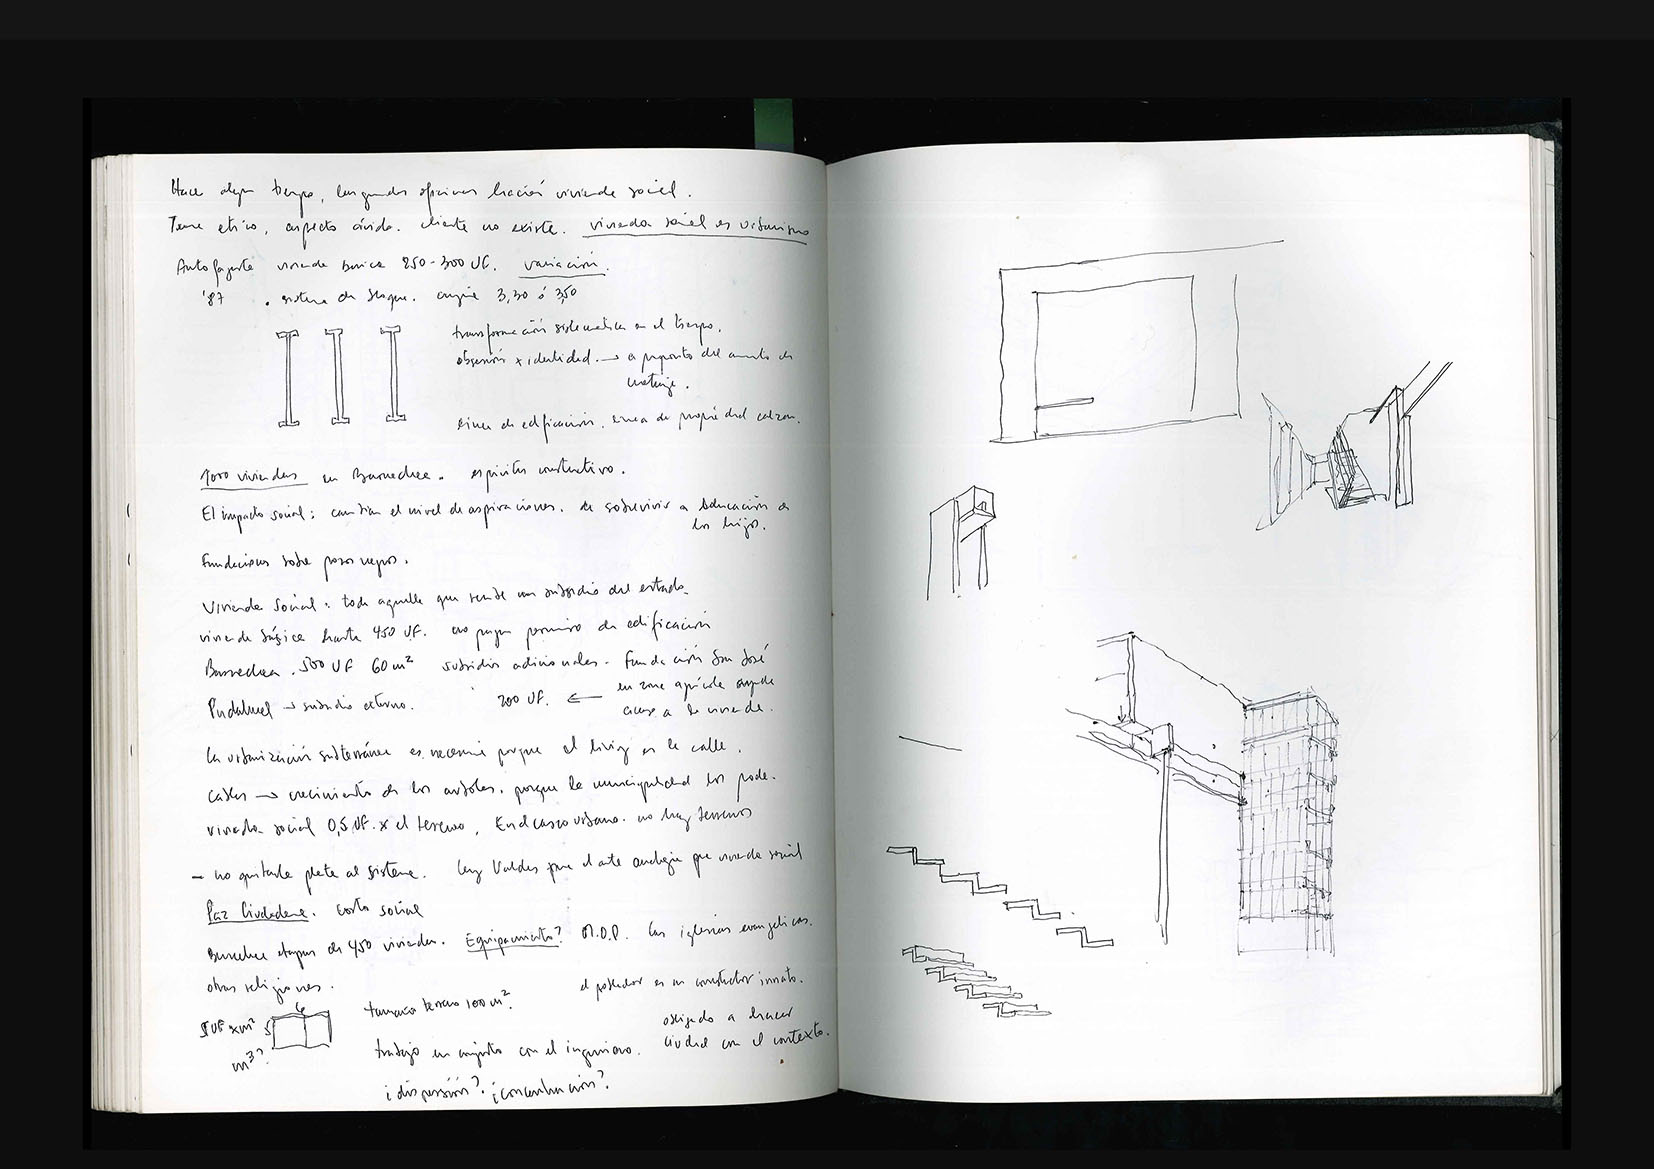 Hace algún tiempo, las grandes oficinas hacían vivienda social.
Tema etico, aspecto árido. cliente no existe. vivienda social es urbanismo
vivienda básica 250-300 UF. variación.
'87 . sistema de bloque. 3,30 ó 3,50
transformación sistematica en el tiempo.
obsesión x identidad. → a proposito del de
montaje.
linea de edificación, linea de propiedad calzan.
1000 viviendas en Barnechea. espiritu constructivo.
El impacto social: cambian el nivel de aspiraciones. de sobrevivir a educación de
los hijos.
Fundaciones sobre pozos negros.
Vivienda social: toda aquella que recibe un subsidio del estado.
vivienda básica hasta 450 UF. no paga permiso de edificación
Barnechea. 500 UF 60 m² subsidios adicionales. Fundación San José
Pudahuel → subsidio externo. 200 UF. ← en zona agrícola
acceso a la vivienda.
La urbanización subterránea es necesaria porque el living es la calle.
cables → crecimiento de los arboles, porque la municipalidad los poda.
vivienda social 0,5 UF. x el terreno, En el casco urbano no hay terrenos
- no quitarle plata al sistema. Ley Valdes para el arte analogia para vivienda social
Paz Ciudadana. costo social
Barnechea etapas de 450 viviendas. Equipamiento? M.O.P. las iglesias evangelicas.
otras religiones.
6
5 UF x m² 5 tamaño terreno 100 m². el poblador es un constructor innato.
m³? obligado a hacer
trabajo en conjunto con el ingeniero. ciudad con el contexto.
¿dispersión? ¿concentración?